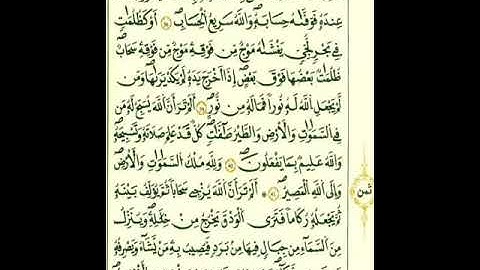 عِندَهُۥ فَوَفَّىٰهُ حِسَابَهُۥ وَاللَّهُ سَرِيعُ الْحِسَابِ أَوْ كَظُلُمَٰتٍ
فِي بَحْرٍ لُّجِّيٍّ يَغْشَىٰهُ مَوْجٌ مِّن فَوْقِهِۦ مَوْجٌ مِّن فَوْقِهِۦ سَحَابٌ
ظُلُمَٰتٌ بَعْضُهَا فَوْقَ بَعْضٍ إِذَا أَخْرَجَ يَدَهُۥ لَمْ يَكَدْ يَرَىٰهَا وَمَن
لَّمْ يَجْعَلِ اللَّهُ لَهُۥ نُوراً فَمَا لَهُۥ مِن نُّورٍ أَلَمْ تَرَ أَنَّ اللَّهَ يُسَبِّحُ لَهُۥ مَن
فِي السَّمَٰوَٰتِ وَالْأَرْضِ وَالطَّيْرُ صَٰٓفَّٰتٍ كُلٌّ قَدْ عَلِمَ صَلَاتَهُۥ وَتَسْبِيحَهُۥ
وَاللَّهُ عَلِيمٌ بِمَا يَفْعَلُونَ وَلِلَّهِ مُلْكُ السَّمَٰوَٰتِ وَالْأَرْضِ
وَإِلَى اللَّهِ الْمَصِيرُ أَلَمْ تَرَ أَنَّ اللَّهَ يُزْجِي سَحَاباً ثُمَّ يُؤَلِّفُ بَيْنَهُۥ
ثُمَّ يَجْعَلُهُۥ رُكَاماً فَتَرَى الْوَدْقَ يَخْرُجُ مِنْ خِلَٰلِهِۦ وَيُنَزِّلُ
مِنَ السَّمَآءِ مِن جِبَالٍ فِيهَا مِن بَرَدٍ فَيُصِيبُ بِهِۦ مَن يَّشَآءُ وَيَصْرِفُهُۥ
ثمن